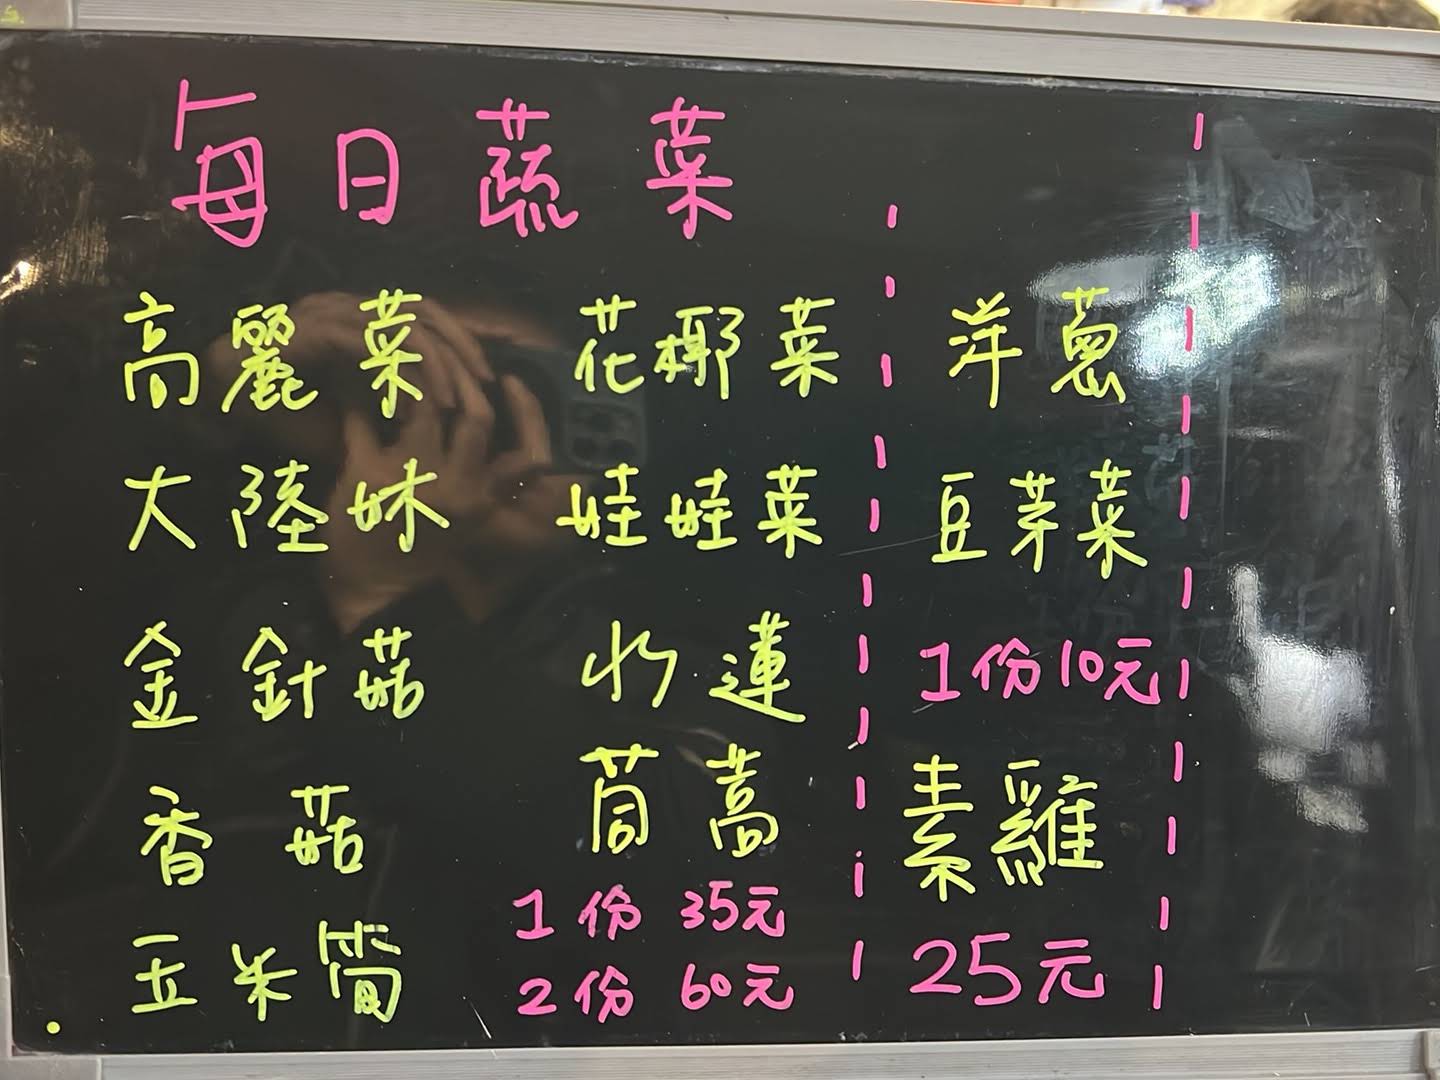 每日蔬菜
高麗菜 花椰菜 洋蔥
大陸妹 娃娃菜 豆芽菜
金針菇 水蓮 1份10元
香菇 茼蒿 素雞
玉米筍 1份 35元
2份 60元 25元